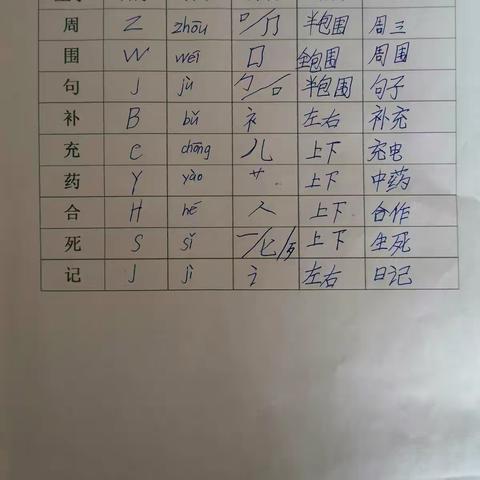 周 Z zhōu 口/冂 半包围 周三
围 W wéi 囗 全包围 周围
句 J jù 勹/口 半包围 句子
补 B bǔ 衤 左右 补充
充 C chōng 儿 上下 充电
药 Y yào 艹 上下 中药
合 H hé 人 上下 合作
死 S sǐ 一/匕/歹 上下 生死
记 J jì 讠 左右 日记